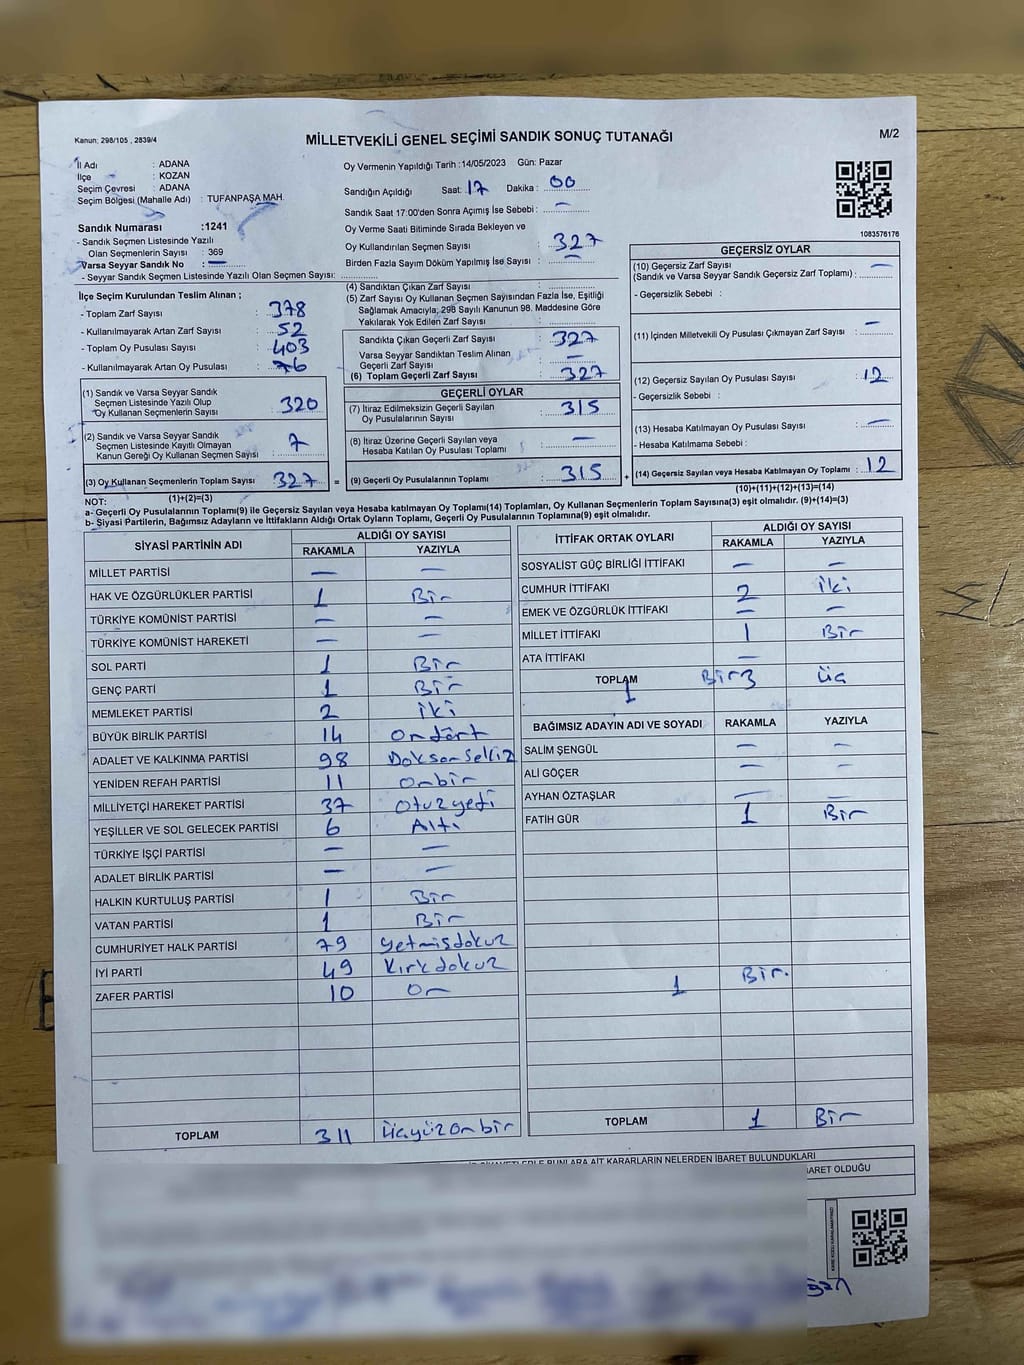 Kanun: 298/105 , 2839/4
MİLLETVEKİLİ GENEL SEÇİMİ SANDIK SONUÇ TUTANAĞI
M/2
İl Adı : ADANA
İlçe : KOZAN
Seçim Çevresi : ADANA
Seçim Bölgesi (Mahalle Adı) : TUFANPAŞA MAH.
Sandık Numarası :1241
- Sandık Seçmen Listesinde Yazılı
Olan Seçmenlerin Sayısı : 369
Varsa Seyyar Sandık No : —
- Seyyar Sandık Seçmen Listesinde Yazılı Olan Seçmen Sayısı:
Oy Vermenin Yapıldığı Tarih :14/05/2023 Gün: Pazar
Sandığın Açıldığı Saat: 17 Dakika : 00
Sandık Saat 17:00'den Sonra Açımış İse Sebebi : —
Oy Verme Saati Bitiminde Sırada Bekleyen ve
Oy Kullandırılan Seçmen Sayısı : 327
Birden Fazla Sayım Döküm Yapılmış İse Sayısı : —
1083576176
İlçe Seçim Kurulundan Teslim Alınan ;
- Toplam Zarf Sayısı : 378
- Kullanılmayarak Artan Zarf Sayısı : 52
- Toplam Oy Pusulası Sayısı : 403
- Kullanılmayarak Artan Oy Pusulası : 76
(1) Sandık ve Varsa Seyyar Sandık
Seçmen Listesinde Yazılı Olup
Oy Kullanan Seçmenlerin Sayısı : 320
(2) Sandık ve Varsa Seyyar Sandık
Seçmen Listesinde Kayıtlı Olmayan
Kanun Gereği Oy Kullanan Seçmen Sayısı : 7
(3) Oy Kullanan Seçmenlerin Toplam Sayısı : 327 =
(1)+(2)=(3)
(4) Sandıktan Çıkan Zarf Sayısı :
(5) Zarf Sayısı Oy Kullanan Seçmen Sayısından Fazla İse, Eşitliği
Sağlamak Amacıyla, 298 Sayılı Kanunun 98. Maddesine Göre
Yakılarak Yok Edilen Zarf Sayısı :
Sandıkta Çıkan Geçerli Zarf Sayısı : 327
Varsa Seyyar Sandıktan Teslim Alınan
Geçerli Zarf Sayısı : —
(6) Toplam Geçerli Zarf Sayısı : 327
GEÇERLİ OYLAR
(7) İtiraz Edilmeksizin Geçerli Sayılan
Oy Pusulalarının Sayısı : 315
(8) İtiraz Üzerine Geçerli Sayılan veya
Hesaba Katılan Oy Pusulası Toplamı : —
(9) Geçerli Oy Pusulalarının Toplamı : 315 +
GEÇERSİZ OYLAR
(10) Geçersiz Zarf Sayısı
(Sandık ve Varsa Seyyar Sandık Geçersiz Zarf Toplamı) : —
- Geçersizlik Sebebi :
(11) İçinden Milletvekili Oy Pusulası Çıkmayan Zarf Sayısı : —
(12) Geçersiz Sayılan Oy Pusulası Sayısı : 12
- Geçersizlik Sebebi :
(13) Hesaba Katılmayan Oy Pusulası Sayısı : —
- Hesaba Katılmama Sebebi :
(14) Geçersiz Sayılan veya Hesaba Katılmayan Oy Toplamı : 12
(10)+(11)+(12)+(13)=(14)
NOT:
a- Geçerli Oy Pusulalarının Toplamı(9) ile Geçersiz Sayılan veya Hesaba katılmayan Oy Toplamı(14) Toplamları, Oy Kullanan Seçmenlerin Toplam Sayısına(3) eşit olmalıdır. (9)+(14)=(3)
b- Siyasi Partilerin, Bağımsız Adayların ve İttifakların Aldığı Ortak Oyların Toplamı, Geçerli Oy Pusulalarının Toplamına(9) eşit olmalıdır.
SİYASİ PARTİNİN ADI ALDIĞI OY SAYISI
RAKAMLA YAZIYLA
MİLLET PARTİSİ — —
HAK VE ÖZGÜRLÜKLER PARTİSİ 1 Bir
TÜRKİYE KOMÜNİST PARTİSİ — —
TÜRKİYE KOMÜNİST HAREKETİ — —
SOL PARTİ 1 Bir
GENÇ PARTİ 1 Bir
MEMLEKET PARTİSİ 2 iki
BÜYÜK BİRLİK PARTİSİ 14 ondört
ADALET VE KALKINMA PARTİSİ 98 Doksansekiz
YENİDEN REFAH PARTİSİ 11 onbir
MİLLİYETÇİ HAREKET PARTİSİ 37 otuzyedi
YEŞİLLER VE SOL GELECEK PARTİSİ 6 Altı
TÜRKİYE İŞÇİ PARTİSİ — —
ADALET BİRLİK PARTİSİ — —
HALKIN KURTULUŞ PARTİSİ 1 Bir
VATAN PARTİSİ 1 Bir
CUMHURİYET HALK PARTİSİ 79 yetmişdokuz
İYİ PARTİ 49 Kırkdokuz
ZAFER PARTİSİ 10 On
TOPLAM 311 üçyüzonbir
İTTİFAK ORTAK OYLARI ALDIĞI OY SAYISI
RAKAMLA YAZIYLA
SOSYALİST GÜÇ BİRLİĞİ İTTİFAKI — —
CUMHUR İTTİFAKI 2 iki
EMEK VE ÖZGÜRLÜK İTTİFAKI — —
MİLLET İTTİFAKI 1 Bir
ATA İTTİFAKI —
TOPLAM 1 Bir 3 üç
BAĞIMSIZ ADAYIN ADI VE SOYADI RAKAMLA YAZIYLA
SALİM ŞENGÜL — —
ALİ GÖÇER — —
AYHAN ÖZTAŞLAR — —
FATİH GÜR 1 Bir
1 Bir.
TOPLAM 1 Bir
BUNLARA AİT KARARLARIN NELERDEN İBARET BULUNDUKLARI
BARET OLDUĞU